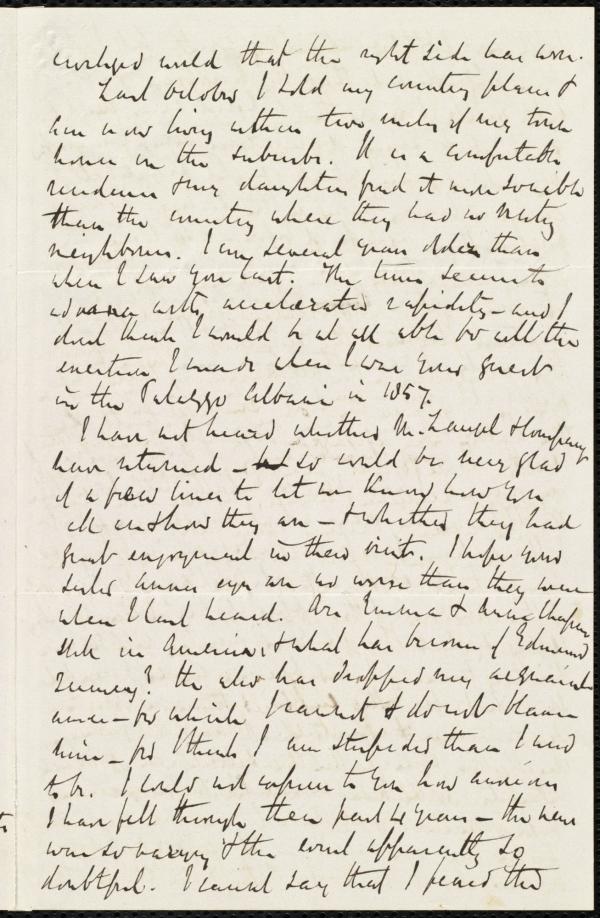 world that the right side has won.
Last October I sold my country place &
am now living within two miles of my town
house in the suburbs. It is a comfortable
residence & my daughters find it more sociable
than the country where they had no
neighbours. I am several years older than
when I saw you last. The time seems to
advance with accelerated rapidity – and I
don't think I would be at all able for all the
exertion I made when I was your guest
in the Palazzo Albani in 1857.
I have not heard whether M. Laugel & company
have returned – so would be very glad
of a few lines to let me know how you
all are & how they are – & whether they had
great enjoyment in their visit. I hope your
sister Annes eyes are no worse than they were
when I last heard. Are Emma & Anne Chapman
still in America, & what has become of Edmund
Quincy? He also has dropped my acquaint
ance – for which I cannot & do not blame
him – for I think I am stupider than I used
to be. I could not express to you how anxious
I have felt through these past 4 years – the news
was so varying & the event apparently so
doubtful. I cannot say that I feared the